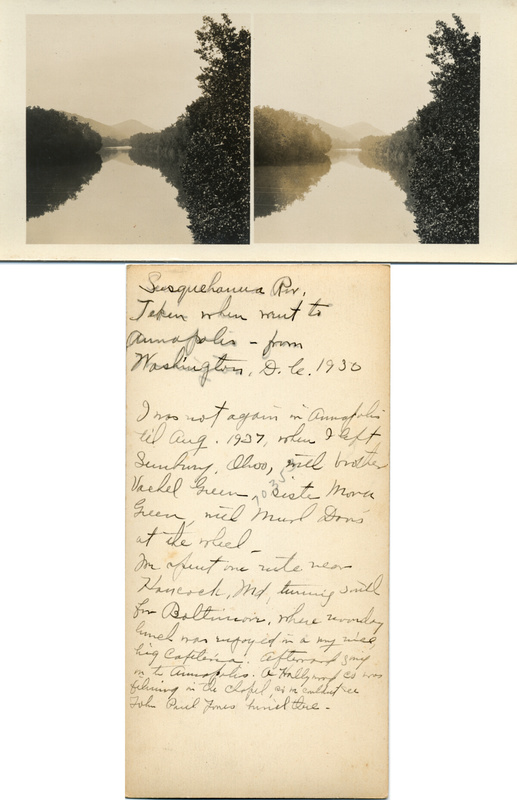 Susquehanna Riv.
Taken when went to
Annapolis - from
Washington, D.C. 1930
I was not again in Annapolis
til Aug. 1937, when I left
Sunbury, Ohio, with brother
Vachel Green, sister Mona
Green, with Murl Davis
at the wheel -
We spent one nite near
Hancock, Md, turning south
for Baltimore, where noonday
lunch was enjoyed in a my nice,
big Cafeteria. Afterward going
on to Annapolis. A Hollywood Co was
filming in the Chapel, so we couldnt see
John Paul Jones buried there -